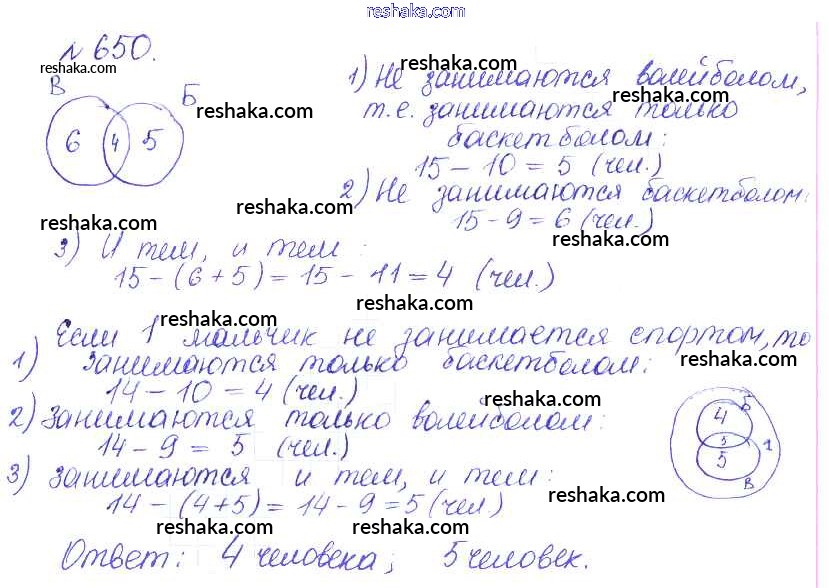 reshaka.com
№ 650.
reshaka.com
В
Б
6 4 5
reshaka.com
1) Не занимаются волейболом,
reshaka.com
reshaka.com
т.е. занимаются только
баскетболом:
15 - 10 = 5 (чел.)
2) Не занимаются баскетболом:
reshaka.com
reshaka.com
15 - 9 = 6 (чел.)
reshaka.com
3) И тем, и тем:
15 - (6 + 5) = 15 - 11 = 4 (чел.)
reshaka.com
reshaka.com
Если 1 мальчик не занимается спортом, то
reshaka.com
1) занимаются только баскетболом:
14 - 10 = 4 (чел.)
reshaka.com
2) занимаются только волейболом:
14 - 9 = 5 (чел.)
Б
4
5
1
5
В
3) занимаются и тем, и тем:
14 - (4+5) = 14 - 9 = 5 (чел)
reshaka.com
reshaka.com
reshaka.com
Ответ: 4 человека; 5 человек.
reshaka.com